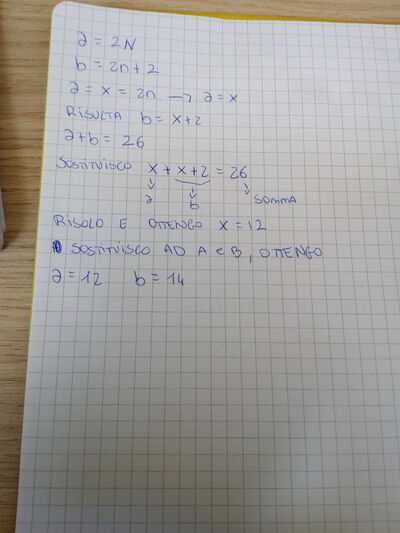 a = 2N
b = 2n + 2
a = x = 2n → a = x
RISULTA b = x+2
a+b = 26
SOSTITUISCO x + x+2 = 26
a b SOMMA
RISOLO E OTTENGO x = 12
SOSTITUISCO AD A e B, OTTENGO
a = 12 b = 14